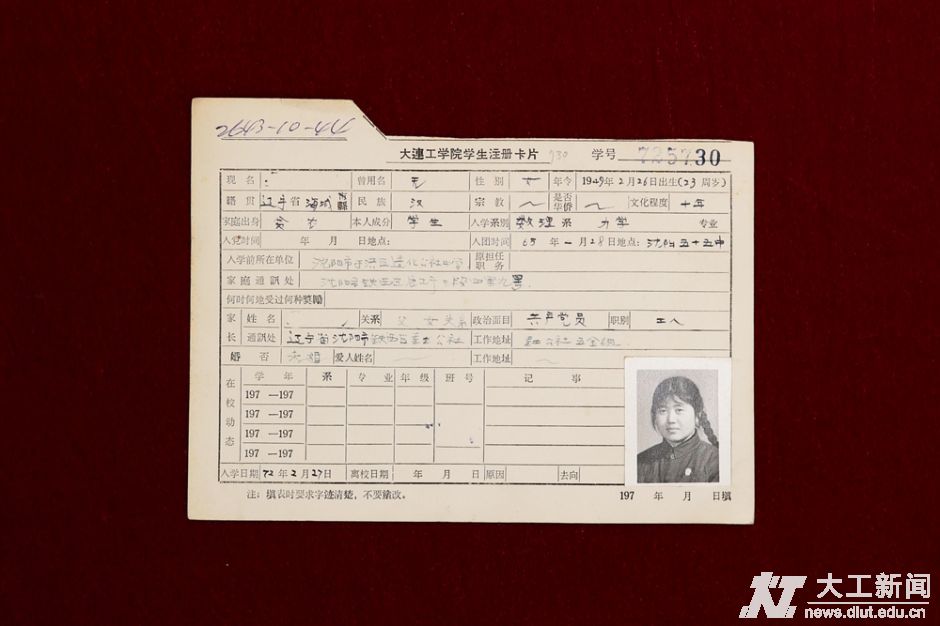 大連工学院学生注册卡片 730 学号 725730
现名 曾用名 无 性别 女 年令 1949年2月26日出生(23周岁)
籍贯 辽宁省海城县 民族 汉 宗教 是否华侨 文化程度 十年
家庭出身 贫农 本人成分 学生 入学系别 数理系 力学 专业
入党时间 年 月 日地点: 入团时间 65年-月28日地点: 沈阳五十五中
入学前所在单位 沈阳市于洪区 公社 原担任职务
家庭通訊处 沈阳市铁西区
何时何地受过何种奖励
家长 姓名 关系 父女关系 政治面目 共产党员 职别 工人
通訊处 辽宁省沈阳市铁西区 公社 工作地址 五金
婚否 未婚 爱人姓名 工作地址
在校动态 学年 系 专业 年级 班号 记事
197 —197
197 —197
197 —197
197 —197
入学日期 72年2月27日 离校日期 年 月 日 原因 去向
注:填表时要求字迹清楚,不要涂改。 197 年 月 日填
大工新闻
news.dlut.edu.cn